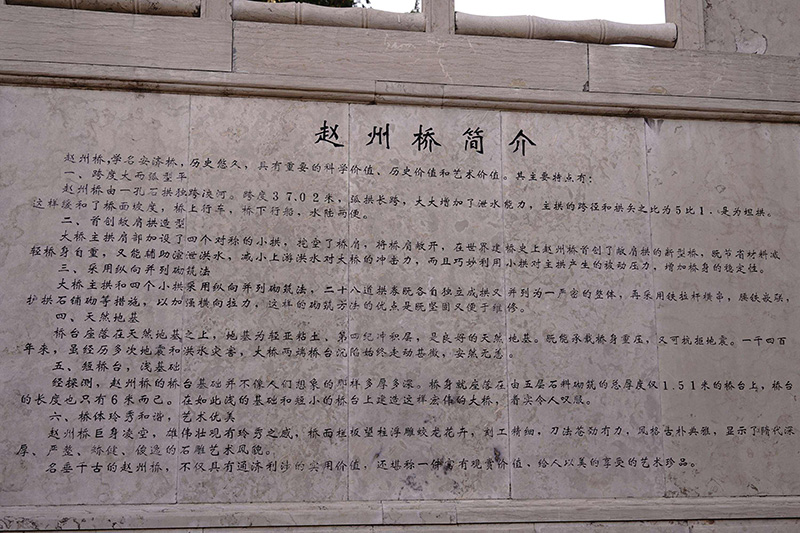 赵州桥简介
赵州桥,学名安济桥,历史悠久,具有重要的科学价值、历史价值和艺术价值。其主要特点有:
一、跨度大而弧型平
赵州桥由一孔石拱独跨洨河。跨度37.02米,弧拱长跨,大大增加了泄水能力,主拱的跨径和拱矢之比为5比1、是为坦拱。
这样缓和了桥面坡度,桥上行车,桥下行船,水陆两便。
二、首创敞肩拱造型
大桥主拱肩部加设了四个对称的小拱,挖空了桥肩,将桥肩敞开,在世界建桥史上赵州桥首创了敞肩拱的新型桥。既节省材料减
轻桥身自重,又能辅助渲泄洪水,减小上游洪水对大桥的冲击力,而且巧妙利用小拱对主拱产生的被动压力,增加桥身的稳定性。
三、采用纵向并列砌筑法
大桥主拱和四个小拱采用纵向并列砌筑法,二十八道拱券既各自独立成拱又并列为一严密的整体,再采用铁拉杆横串,腰铁嵌联,
护拱石铺砌等措施,以加强横向拉力,这样的砌筑方法的优点是既坚固又便于维修。
四、天然地基
桥台座落在天然地基之上,地基为轻亚粘土、第四纪冲积层,是良好的天然地基。既能承载桥身重庄,又可抗拒地震。一千四百
年来,虽经历多次地震和洪水灾害,大桥两端桥台沉陷始终走动甚微,安然无恙。
五、短桥台,浅基础
经探测,赵州桥的桥台基础并不像人们想象的那样多厚多深。桥身就座落在由五层石料砌筑的总厚度仅1.51米的桥台上,桥台
的长度也只有6米而已。在如此浅的基础和短小的桥台上建造这样宏伟的大桥,着实令人叹服。
六、桥体玲秀和谐,艺术优美
赵州桥巨身凌空,雄伟壮观有玲秀之感,桥面栏板望柱浮雕蛟龙花卉,刻工精细,刀法苍劲有力,风格古朴典雅,显示了隋代深
厚、严整、矫健、俊逸的石雕艺术风貌。
名垂千古的赵州桥,不仅具有通济利涉的实用价值,还堪称一件富有观赏价值、给人以美的享受的艺术珍品。